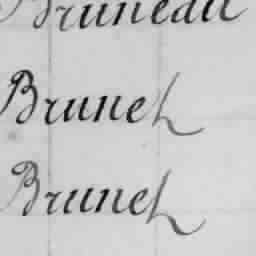 Bruneau
Brunet
Brunet